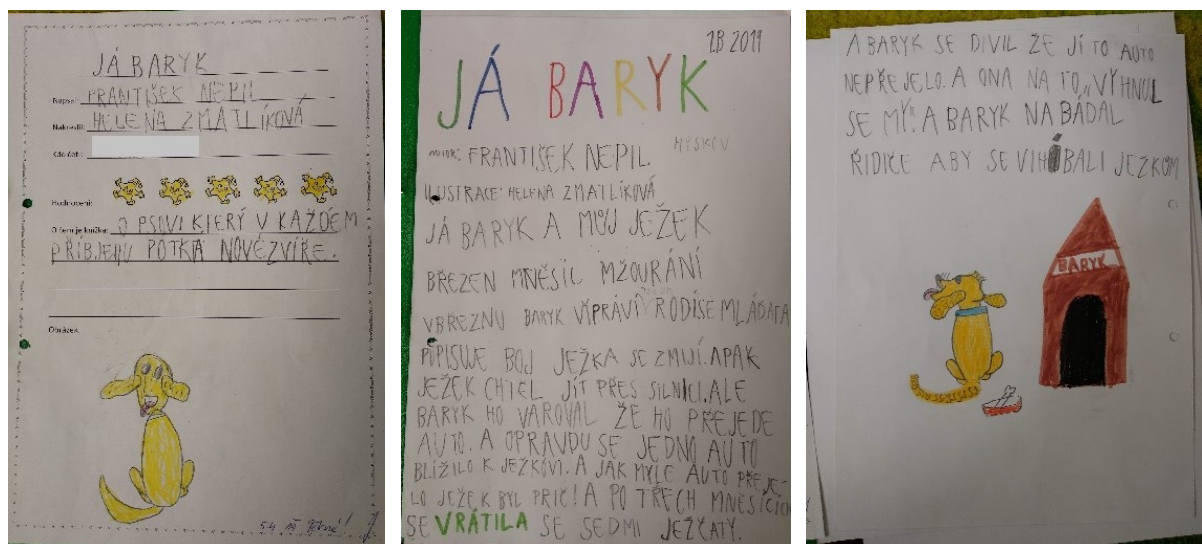 JÁ BARYK
Napsal: FRANTIŠEK NEPIL
Nakreslil: HELENA ZMATLÍKOVÁ
Kdo četl:
Hodnocení:
O čem je knížka: O PSOVI KTERÝ V KAŽDÉM
PŘÍBJEHU POTKÁ NOVÉ ZVÍŘE.
Obrázek:
1.B 2019
JÁ BARYK
AUTOR: FRANTIŠEK NEPIL
ILUSTRACE: HELENA ZMATLÍKOVÁ
JÁ BARYK A MŮJ JEŽEK
BŘEZEN MNĚSÍC MŽOURÁNÍ
V BŘEZNU BARYK VIPRÁVÍ RODÍ SE MLÁĎATA
POPISUJE BOJ JEŽKA SE ZMIJÍ. A PAK
JEŽEK CHTĚL JÍT PŘES SILNICI. ALE
BARYK HO VAROVAL ŽE HO PŘEJEDE
AUTO. A OPRAVDU SE JEDNO AUTO
BLÍŽILO K JEŽKOVI. A JAK MYLE AUTO PŘEJE-
LO JEŽEK BYL PRIČ! A PO TŘECH MNĚSÍCÍCH
SE VRÁTILA SE SEDMI JEŽČATY.
A BARYK SE DIVIL ŽE JÍ TO AUTO
NEPŘEJELO. A ONA NA TO „VYHNUL
SE MY." A BARYK NABÁDAL
ŘIDIČE ABY SE VIHÍBALI JEŽKŮM
BARYK